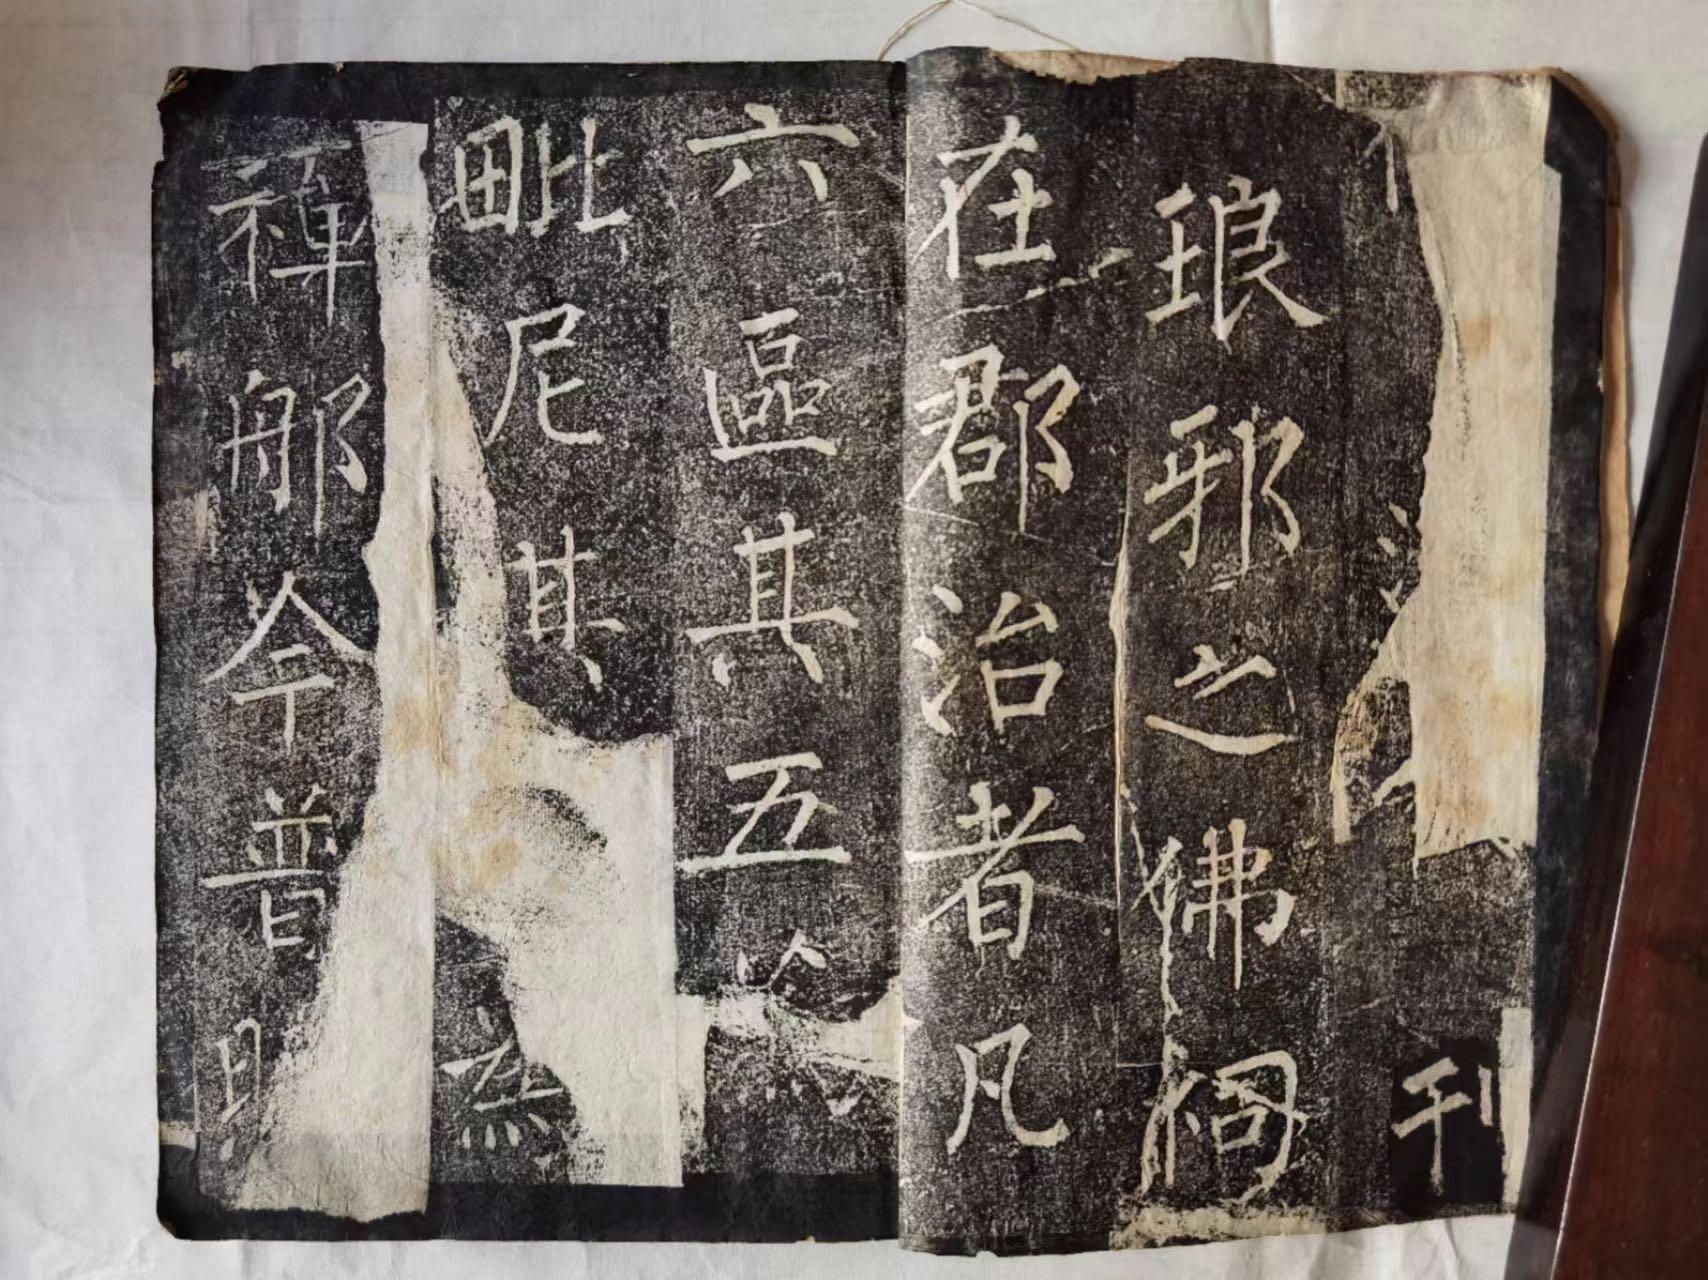 刊
琅邪之佛祠
在郡治者凡
六區其五
毗尼其
禪郍今普照